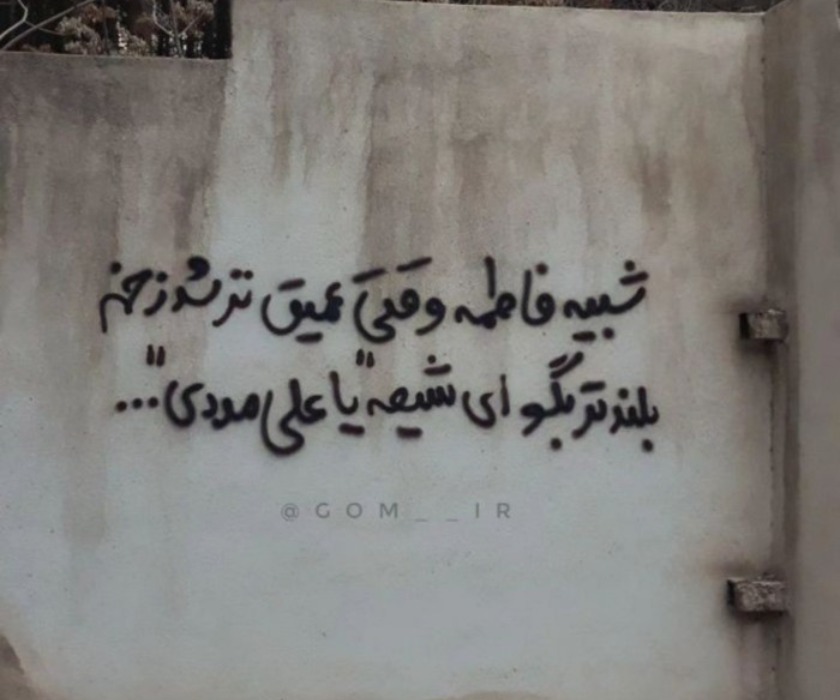 شبیه فاطمه وقتی عمیق تر شد زخم
بلندتر بگو ای شیعه "یا علی مددی"...
@GOM__IR